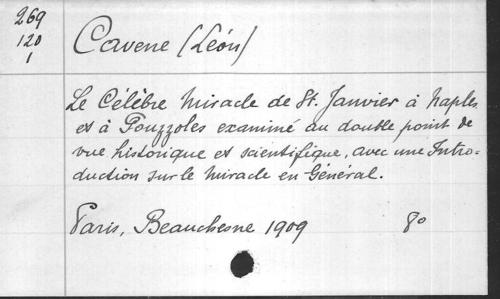 269
120
1
Cavene (Léon)
Le Célèbre Miracle de St. Janvier à Naples
et à Pouzzoles examiné au double point de
vue historique et scientifique, avec une Intro-
duction sur le Miracle en Général.
Paris, Beauchesne 1909 8o